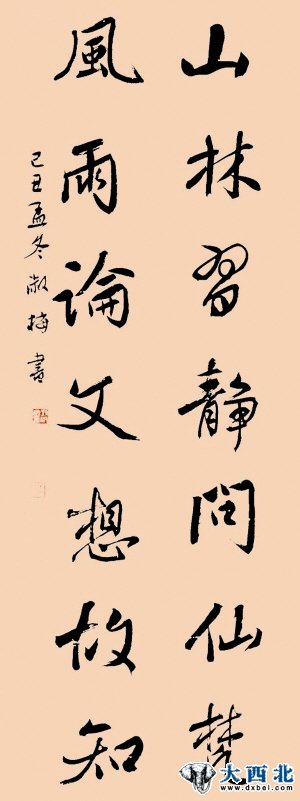 山林習靜問仙梵
風雨論文想故知
己丑孟冬淑梅書
大西北
www.dxbei.com